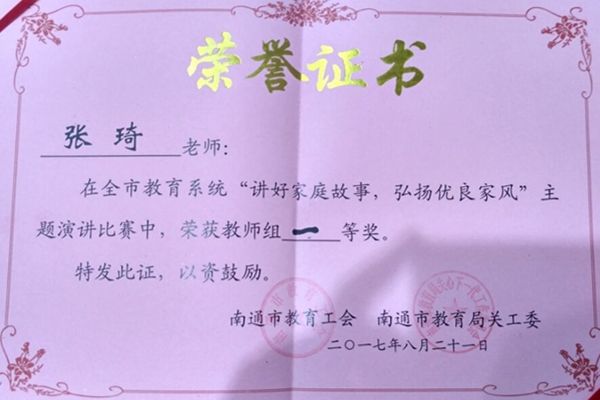 荣誉证书
张琦 老师：
在全市教育系统“讲好家庭故事，弘扬优良家风”主
题演讲比赛中，荣获教师组一等奖。
特发此证，以资鼓励。
南通市教育工会 南通市教育局关工委
二〇一七年八月二十一日